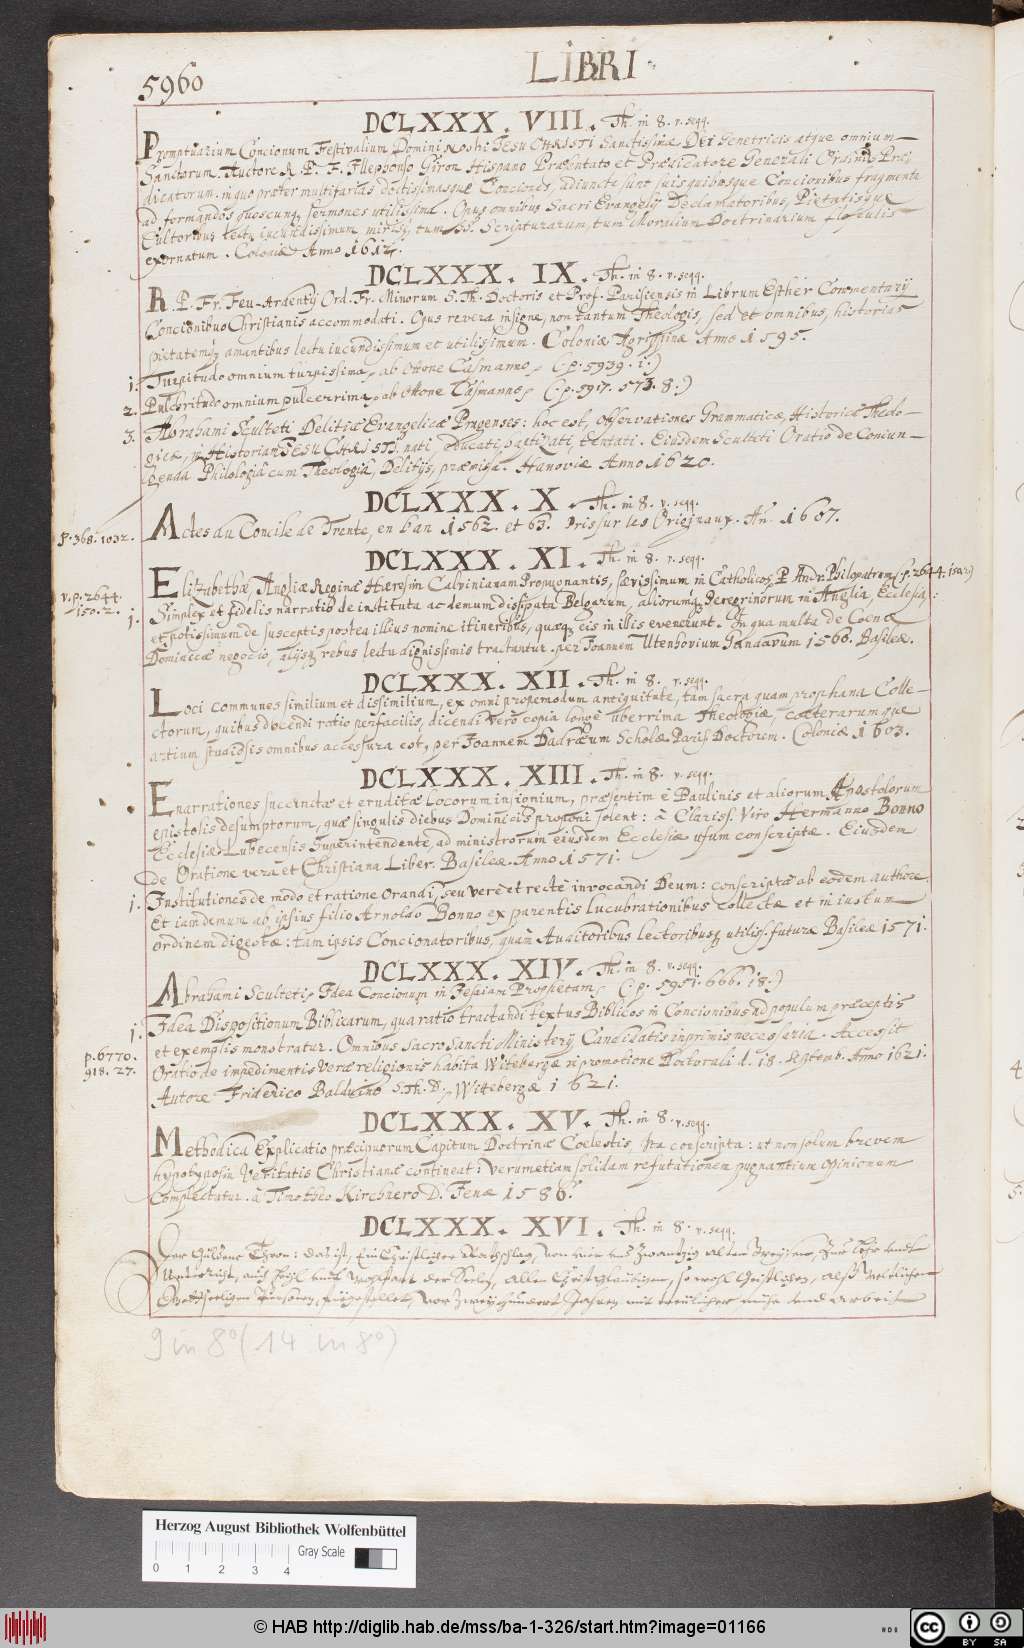 5960
LIBRI
DCLXXX. VIII. Th. in 8. v. seqq.
Promptuarium Concionum Festivalium Domini Nostri JESU CHRISTI Sanctissimæ DEI Genetricis atque omnium
Sanctorum. Auctore R. P. F. Illephonso Giron Hispano Præsentato et Prædicatore Generali Ordinis Præ-
dicatorum. in quo præter multifarias doctissimasque Conciones, adiuncta sunt suis quibusque Concionibus fragmenta
ad formandos quoscunq sermones utilissima. Opus omnibus Sacri Evangelij Declamatoribus, Pietatisque
Cultoribus lectu iucundissimum mirisq, tum SS. Scripturarum, tum Moralium Doctrinarum flosculis
exornatum. Coloniæ Anno 1612.
DCLXXX. IX. Th. in 8. v. seqq.
R. P. Fr. Feu-Ardentij Ord. Fr. Minorum S. Th. Doctoris et Prof. Parisiensis in Librum Esther Commentarij
Concionibus Christianis accommodati. Opus revera insigne, non tantum Theologis, sed et omnibus, historias
pietatemq amantibus lectu iucundissimum et utilissimum. Coloniæ Agrippinæ Anno 1595.
1. Turpitudo omnium turpissima, ab Ottone Casmanno, (p. 5939. 1.)
2. Pulchritudo omnium pulcerrima, ab Ottone Casmanno, (p. 5917. 573. 8.)
3. Abrahami Sculteti Delitiæ Evangelicæ Pragenses: hoc est, Observationes Grammaticæ, Historicæ Theolo-
gicæ, in Historiam JESU CHRISTI, nati, educati, baptizati, tentati. Eiusdem Sculteti Oratio de Coniun-
genda Philologia cum Theologia, Delitijs, præmissa. Hanoviæ Anno 1620.
DCLXXX. X. Th. in 8. v. seqq.
p. 368. 1032.
Actes du Concile de Trente, en l'an 1562. et 63. Pris sur les Originaux. An. 1607.
DCLXXX. XI. Th. in 8. v. seqq.
Elizabethæ, Angliæ Reginæ Hæresin Calvinianam Propugnantis, sævissimum in Catholicos, P. Andr. Philopatrum (p. 2644. 150. 2.)
v. p. 2644.
150. 2.
1. Simplex et fidelis narratio de instituta ac demum dissipata Belgarum, aliorumq Peregrinorum in Anglia, Ecclesia:
et potissimum de susceptis postea illius nomine itineribus, quæq eis in illis evenerunt. In qua multa de Coenæ
Dominicæ negocio, alijsq rebus lectu dignissimis tractantur. per Joannem Utenhovium Gandavum 1560. Basileæ.
DCLXXX. XII. Th. in 8. v. seqq.
Loci communes similium et dissimilium, ex omni propemodum antiquitate, tam sacra quam prophana Colle-
ctorum, quibus docendi ratio perfacilis, dicendi vero copia longe uberrima Theologiæ, cæterarumque
artium studiosis omnibus accessura est, per Joannem Dadræum Scholæ Paris. Doctorem. Coloniæ 1603.
DCLXXX. XIII. Th. in 8. v. seqq.
Enarrationes succinctæ et eruditæ Locorum insignium, præsertim è Paulinis et aliorum Apostolorum
epistolis desumptorum, quæ singulis diebus Dominicis proponi solent: à Clariss. Viro Hermanno Bonno
Ecclesiæ Lubecensis Superintendente, ad ministrorum eiusdem Ecclesiæ usum conscriptæ. Eiusdem
de Oratione vera et Christiana Liber. Basileæ. Anno 1571.
1. Institutiones de modo et ratione Orandi, seu vere et recte invocandi Deum: conscriptæ ab eodem authore.
Et iam demum ab ipsius filio Arnoldo Bonno ex parentis lucubrationibus collectæ et in iustum
ordinem digestæ: tam ipsis Concionatoribus, quam Auditoribus lectoribusq utiliss. futuræ Basileæ 1571.
DCLXXX. XIV. Th. in 8. v. seqq.
Abrahami Sculteti, Idea Concionum in Jesaiam Prophetam, (p. 5951. 666. 18.)
1. Idea Dispositionum Biblicarum, qua ratio tractandi textus Biblicos in Concionibus ad populum præceptis
p. 6770.
918. 27.
et exemplis monstratur. Omnibus Sacrosancti Ministerij Candidatis inprimis necessaria. Accessit
Oratio de impedimentis Veræ religionis habita Witebergæ in promotione Doctorali d. 18. Septemb. Anno 1621.
Autore Friderico Balduino S. Th. D., Witebergæ 1621.
DCLXXX. XV. Th. in 8. v. seqq.
Methodica Explicatio præcipuorum Capitum Doctrinæ Coelestis, ita conscripta: ut non solum brevem
hypotyposin Veritatis Christianæ contineat: Verumetiam solidam refutationem pugnantium opinionum
complectatur. à Timotheo Kirchnero D. Jenæ 1586.
DCLXXX. XVI. Th. in 8. v. seqq.
Der Güldene Thron: das ist, Ein Christlicher Rathschlag, von vier und zwantzig alten Lehr und
Unterricht, auch Heyl und wohlfart der Seelen, allen Christglaubigen, so wohl Geistlichen, alß Weltlichen
Personen, fürgestellet, vor zweyhundert Jahren mit mühe und arbeit
9 in 8° (14 in 8°)
Herzog August Bibliothek Wolfenbüttel
Gray Scale
0 1 2 3 4
© HAB http://diglib.hab.de/mss/ba-1-326/start.htm?image=01166
cc BY SA